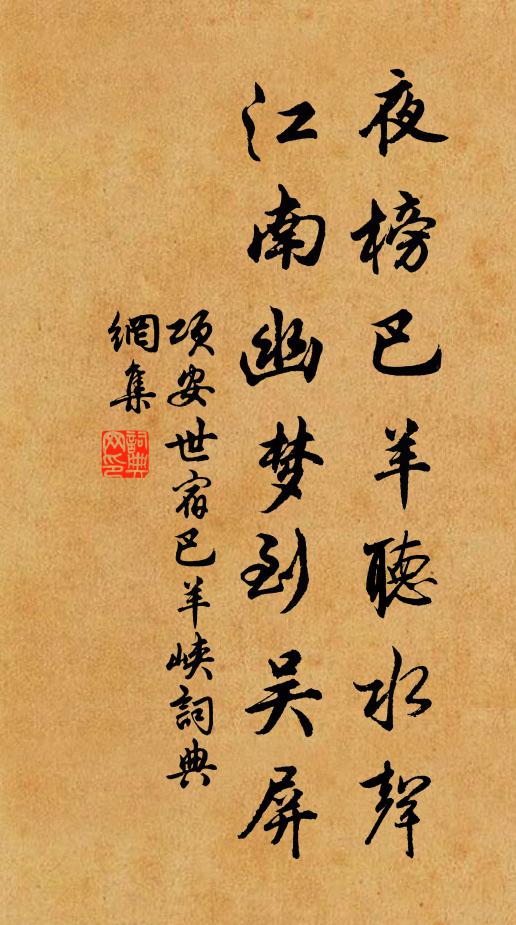 夜榜巴羊聽水聲
江南幽梦到吴屏
项安世宿巴羊峡詞典
網集
詞典
网印